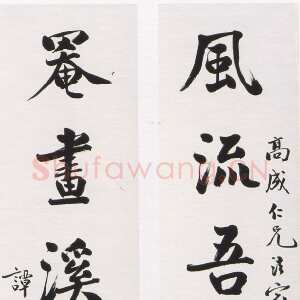 高成仁兄法家
風流吾
罨畫溪
譚
Shufawang.CN